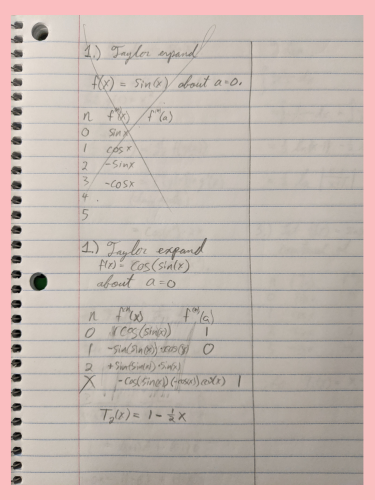 1.) Taylor expand
f(x) = sin(x) about a=0.
n f⁽ⁿ⁾(x) f⁽ⁿ⁾(a)
0 sinx
1 cosx
2 -sinx
3 -cosx
4 .
5
1.) Taylor expand
f(x) = cos(sin(x)
about a=0
n f⁽ⁿ⁾(x) f⁽ⁿ⁾(a)
0 cos(sin(x)) 1
1 -sin(sin(x))·cos(x) 0
2 +sin(sin(x))·sin(x)
-cos(sin(x))(-cosx)cos(x) 1
T₂(x) = 1 - ½x